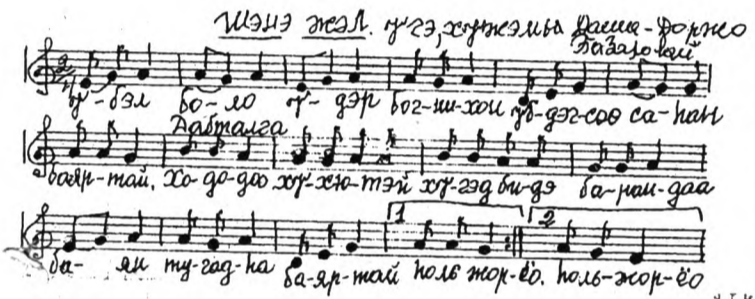 Шэнэ жэл. Үгэ, хүгжэмынь Даша-Доржо
Базаровай
Ү-бэл бо-ло ү-дэр бог-ни-хон үб-дэг-соо са-һан
Дабталга
ба-яр-тай. Хо-до-доо хү-хю-тэй хү-гэд би-дэ ба-ран-даа
1 2
ба-ян ту-гад-һа ба-яр-тай нэль жор-ёо. поль-жор-ёо